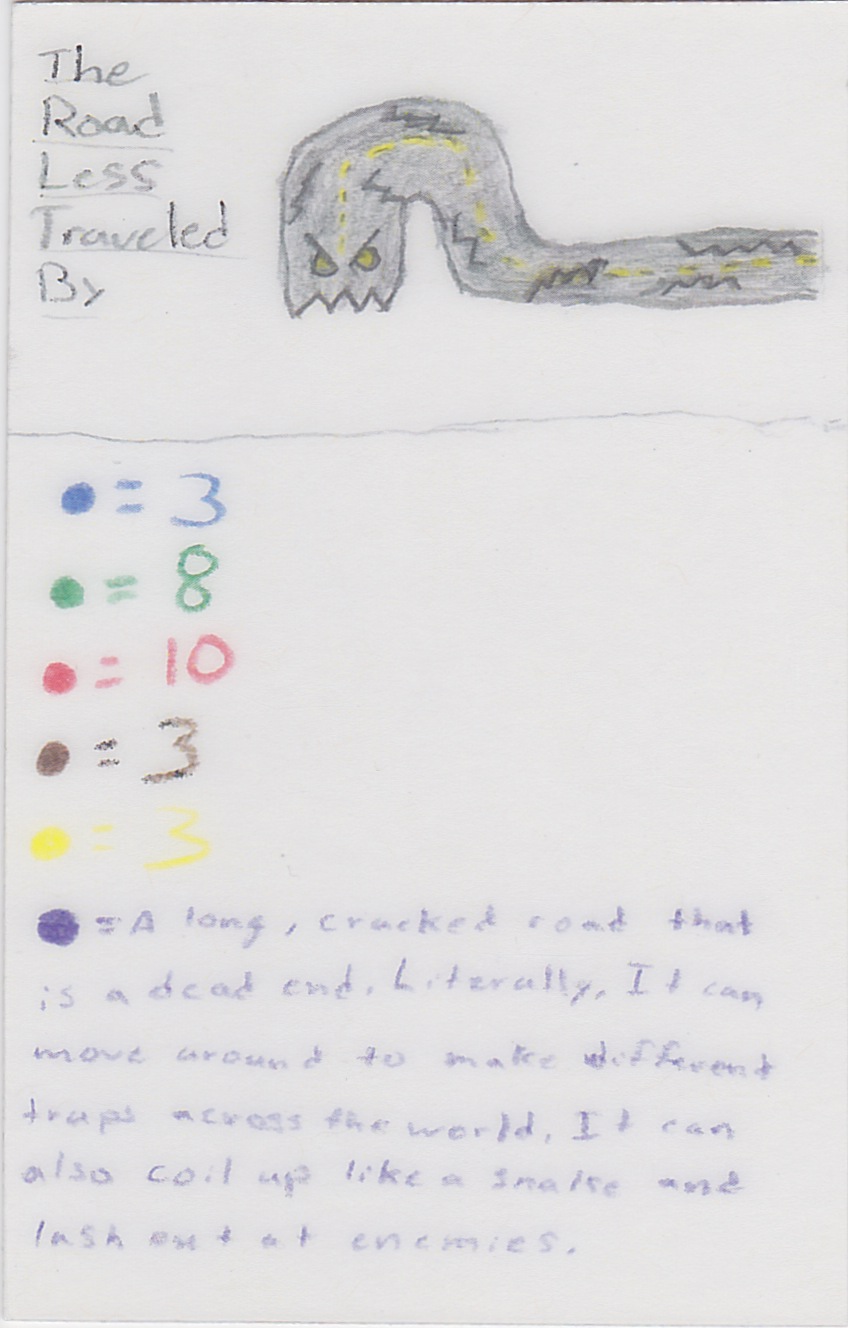 The
Road
Less
Traveled
By
= 3
= 8
= 10
= 3
= 3
= A long, cracked road that
is a dead end. Literally. It can
move around to make different
traps across the world. It can
also coil up like a snake and
lash out at enemies.